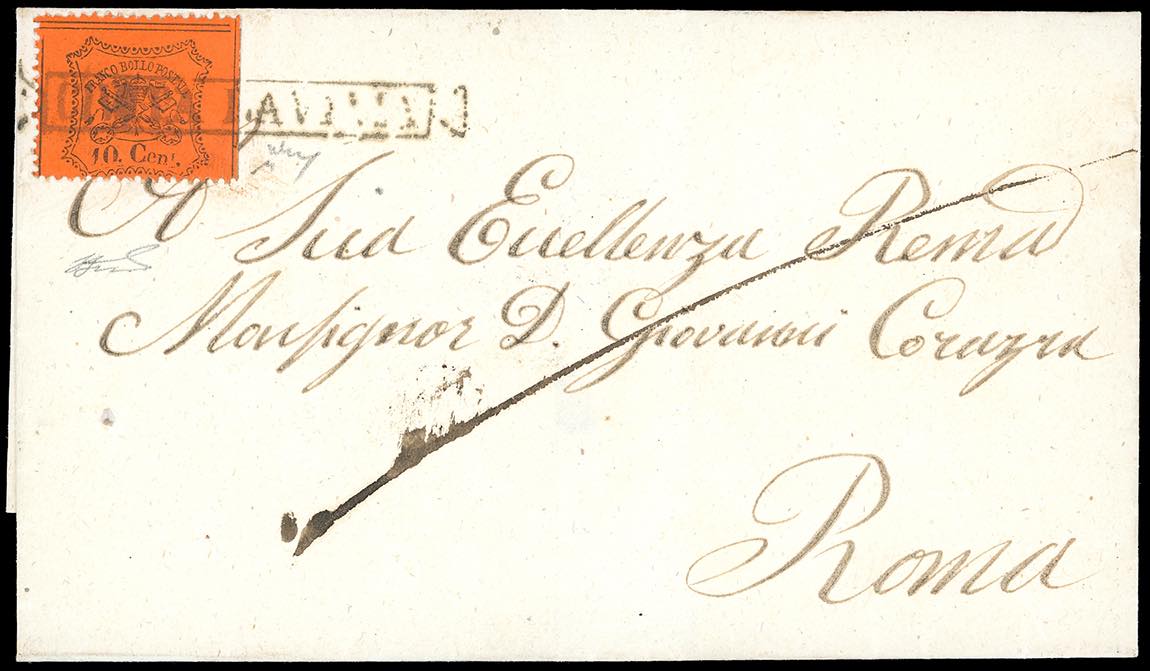 FRANCO BOLLO POSTALE
10. Cent.
CIVITA LAVINIA
A Sua Eccellenza Revma
Monsignor D. Giovanni Corazza
Roma